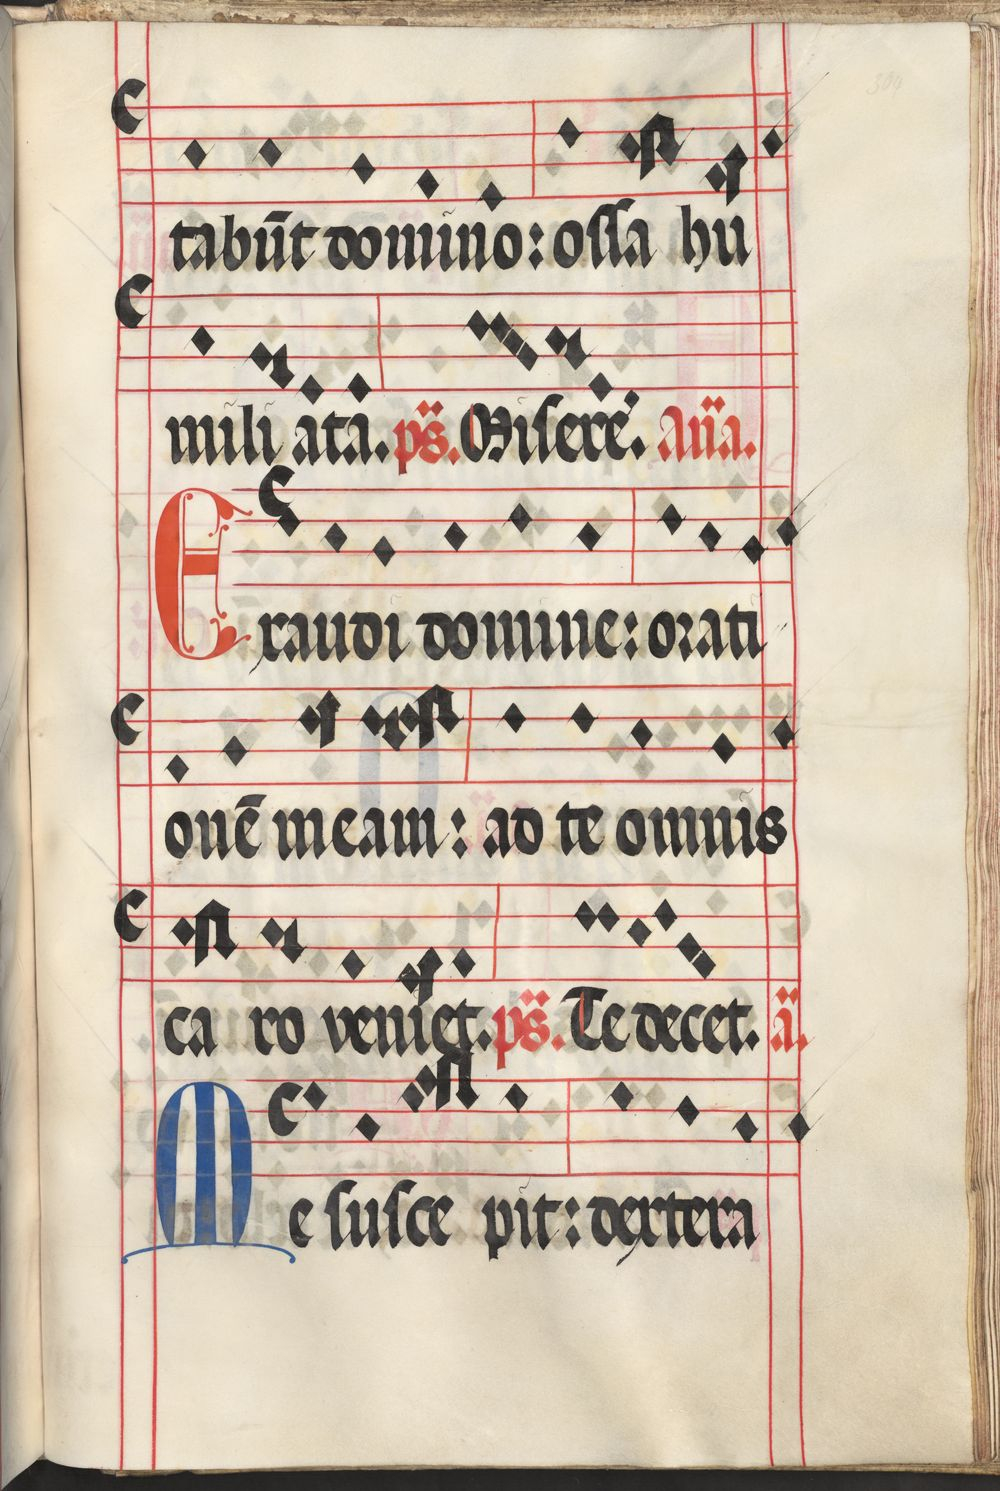 304
tabūt domino: ossa hu
mili ata. ps. Miserere. Aña.
Exaudi domine: orati
onē meam: ad te omnis
ca ro veniet. ps. Te decet. a.
Me susce pit: dextera